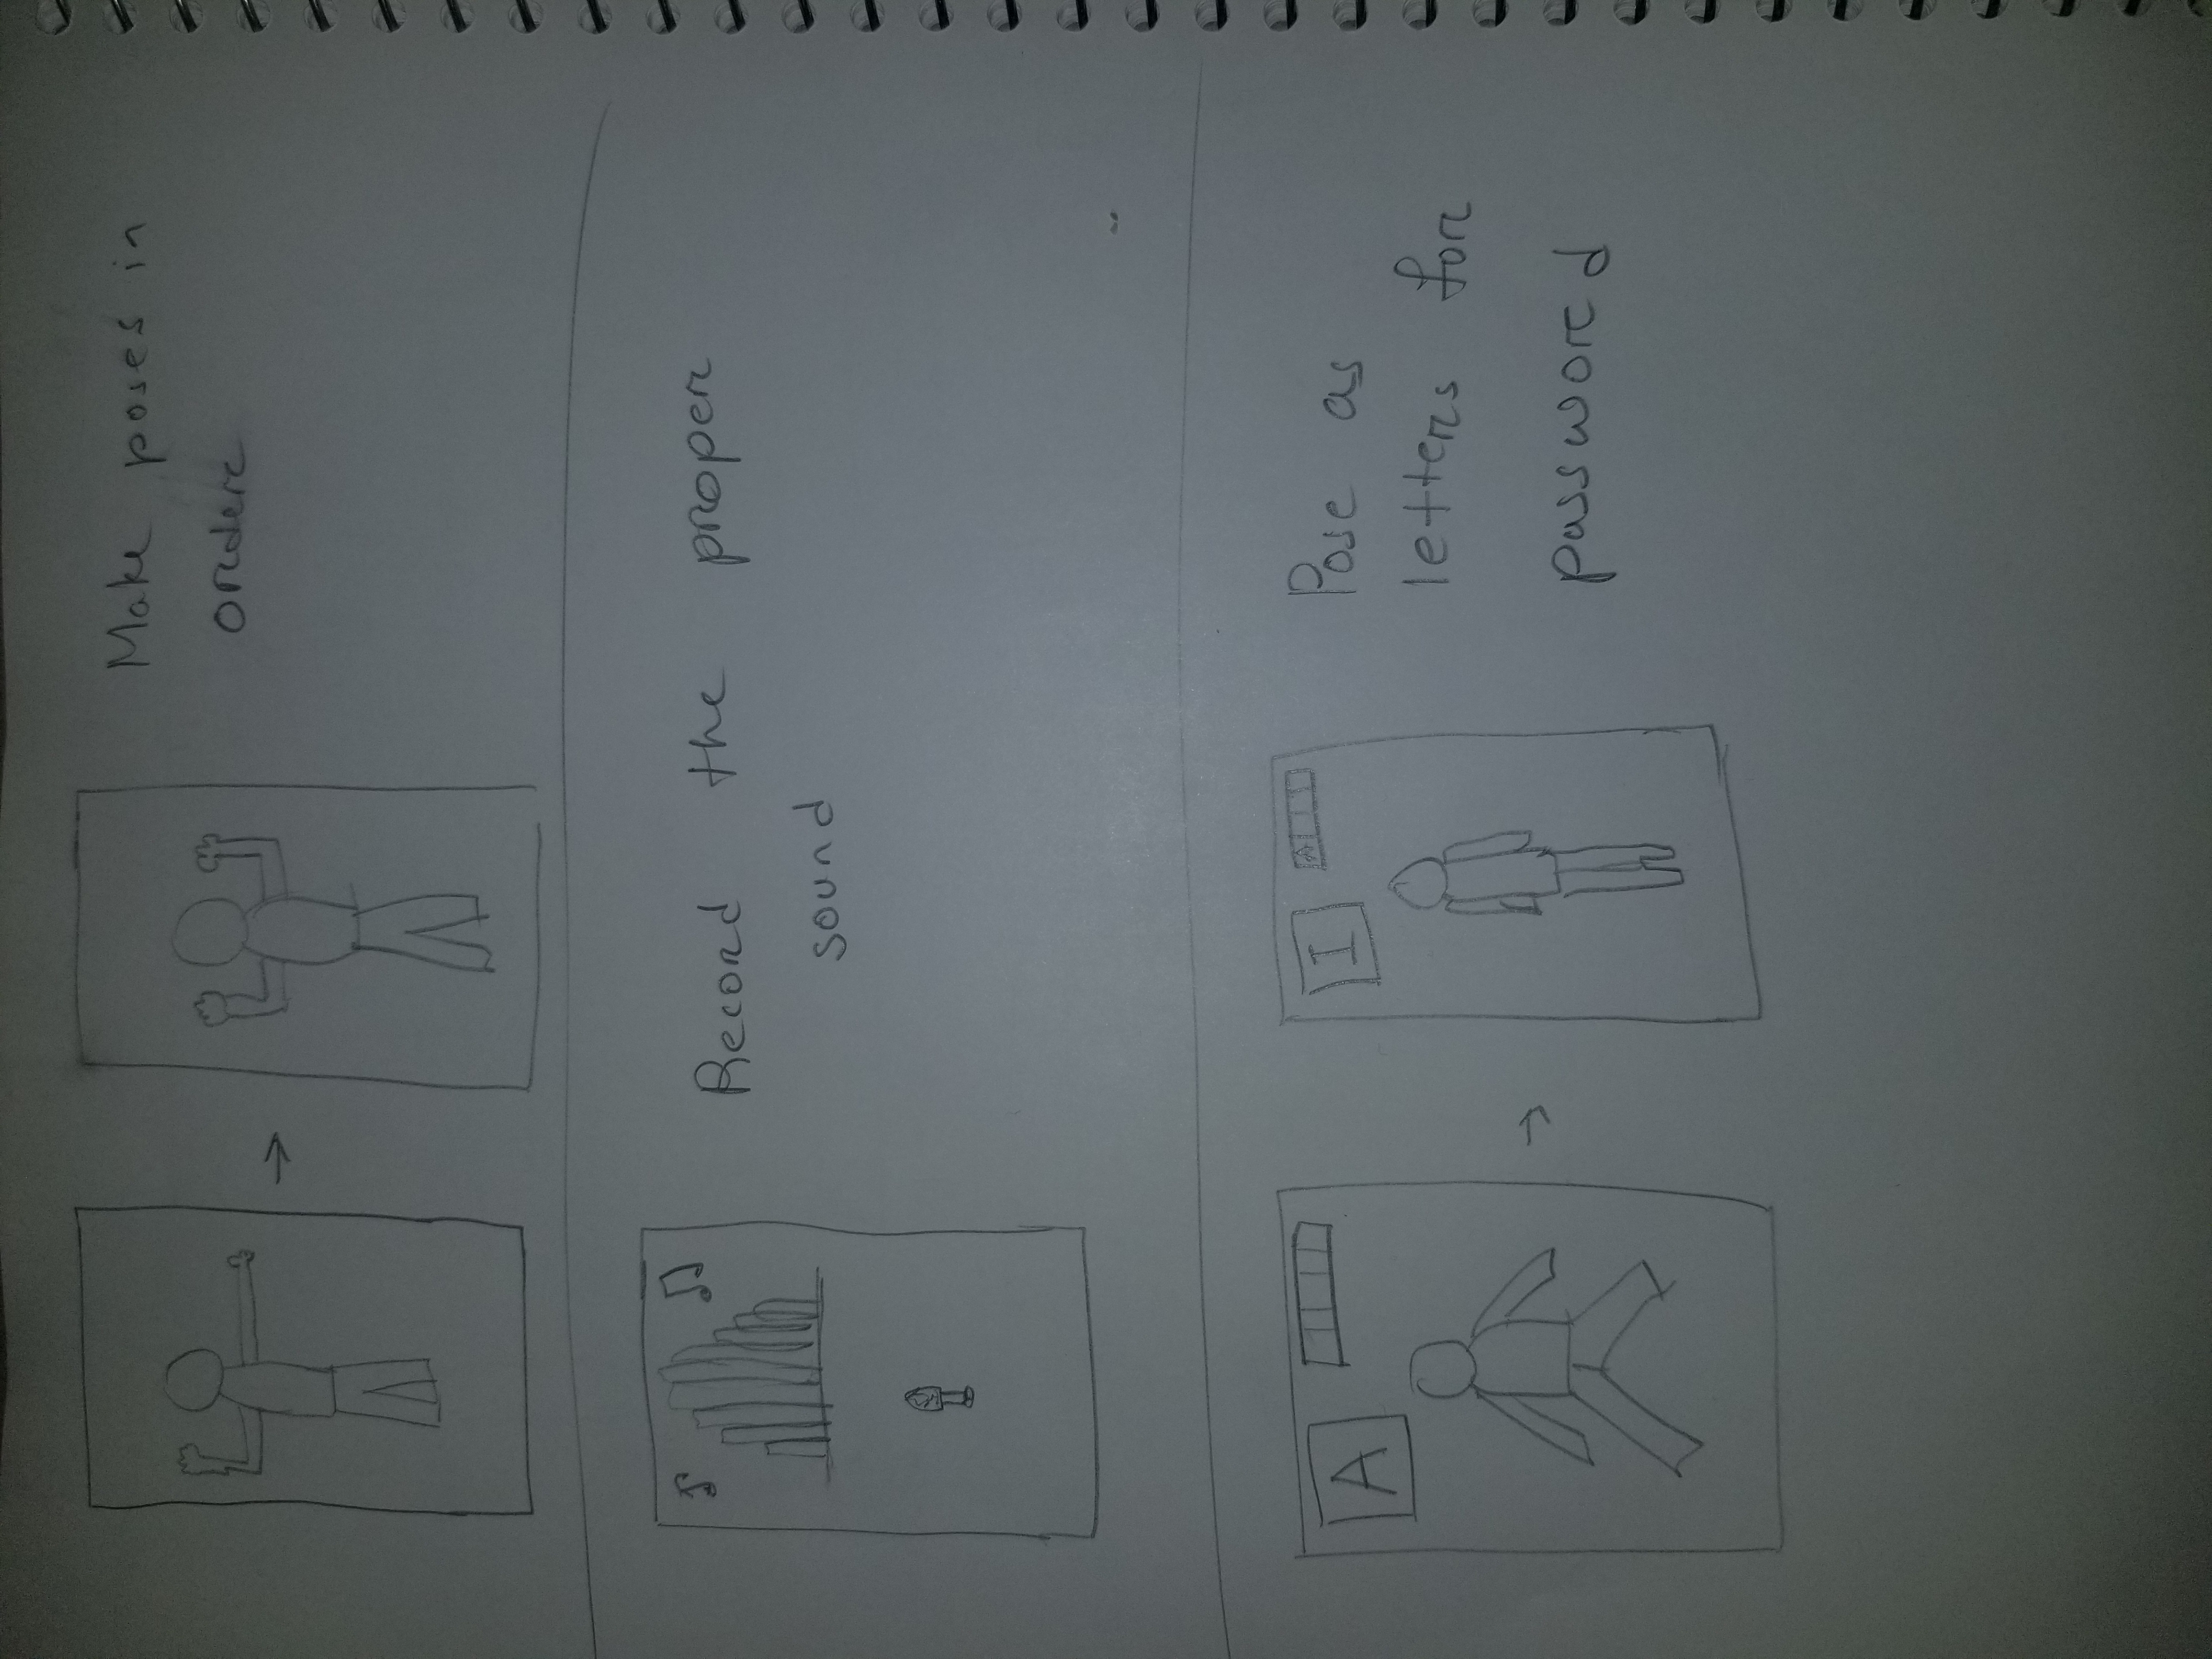 Make poses in
order
Record the proper
sound
A
I
A
Pose as
letters for
password